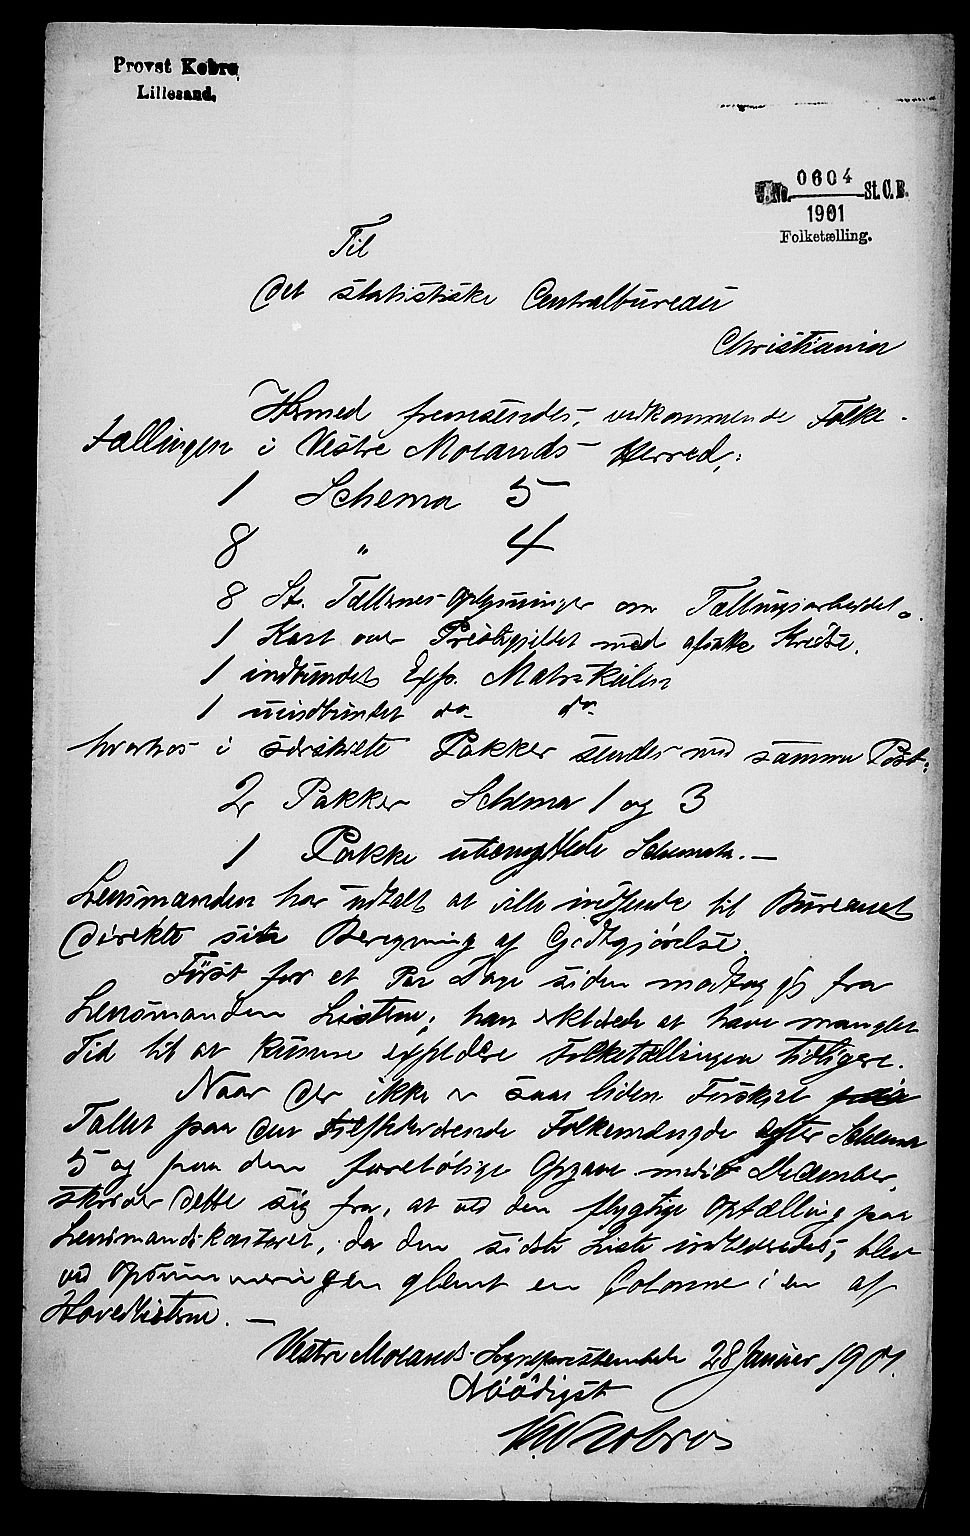 Provst Kobro,
Lillesand.
J.No. 0604 St.C.B.
1901
Folketælling.
Til
Det statistiske Centralbureau
Christiania
Hermed fremsendes, vedkommende Folke-
tællingen i Vestre Molands Herred,:
1 Schema 5
8 " 4
8 St. Tællernes Oplysninger om Tællingsarbeidet.
1 Kart over Præstegjeldet med afsatte Kredse.
1 indbundet Expl. Matrikulen
1 uindbundet do. do.
hvorhos i særskilte Pakker sendes med samme Post:
2 Pakker Schema 1 og 3
1 Pakke ubenyttede Schemata. —
Lensmanden har udtalt at ville indsende til Bureauet
direkte sin Beregning af Godtgjørelse.
Først for et Par Dage siden modtog jeg fra
Lensmanden Listerne; han erklærede at have manglet
Tid til at kunne expedere Folketællingen tidligere.
Naar der ikke er saa liden Forskjel
Tallet paa den tilstedeværende Folkemængde efter Schema
5 og paa den foreløbige Opgave medio December,
skriver dette sig fra, at ved den flygtige Optælling paa
Lensmandskontoret, da den sidste Liste indleveredes, blev
ved Opsummeringen glemt en Colonne i en af
Hovedlisterne. —
Vestre Molands Sogneprestembede 28 Januar 1901.
Ærbødigst
Kobro